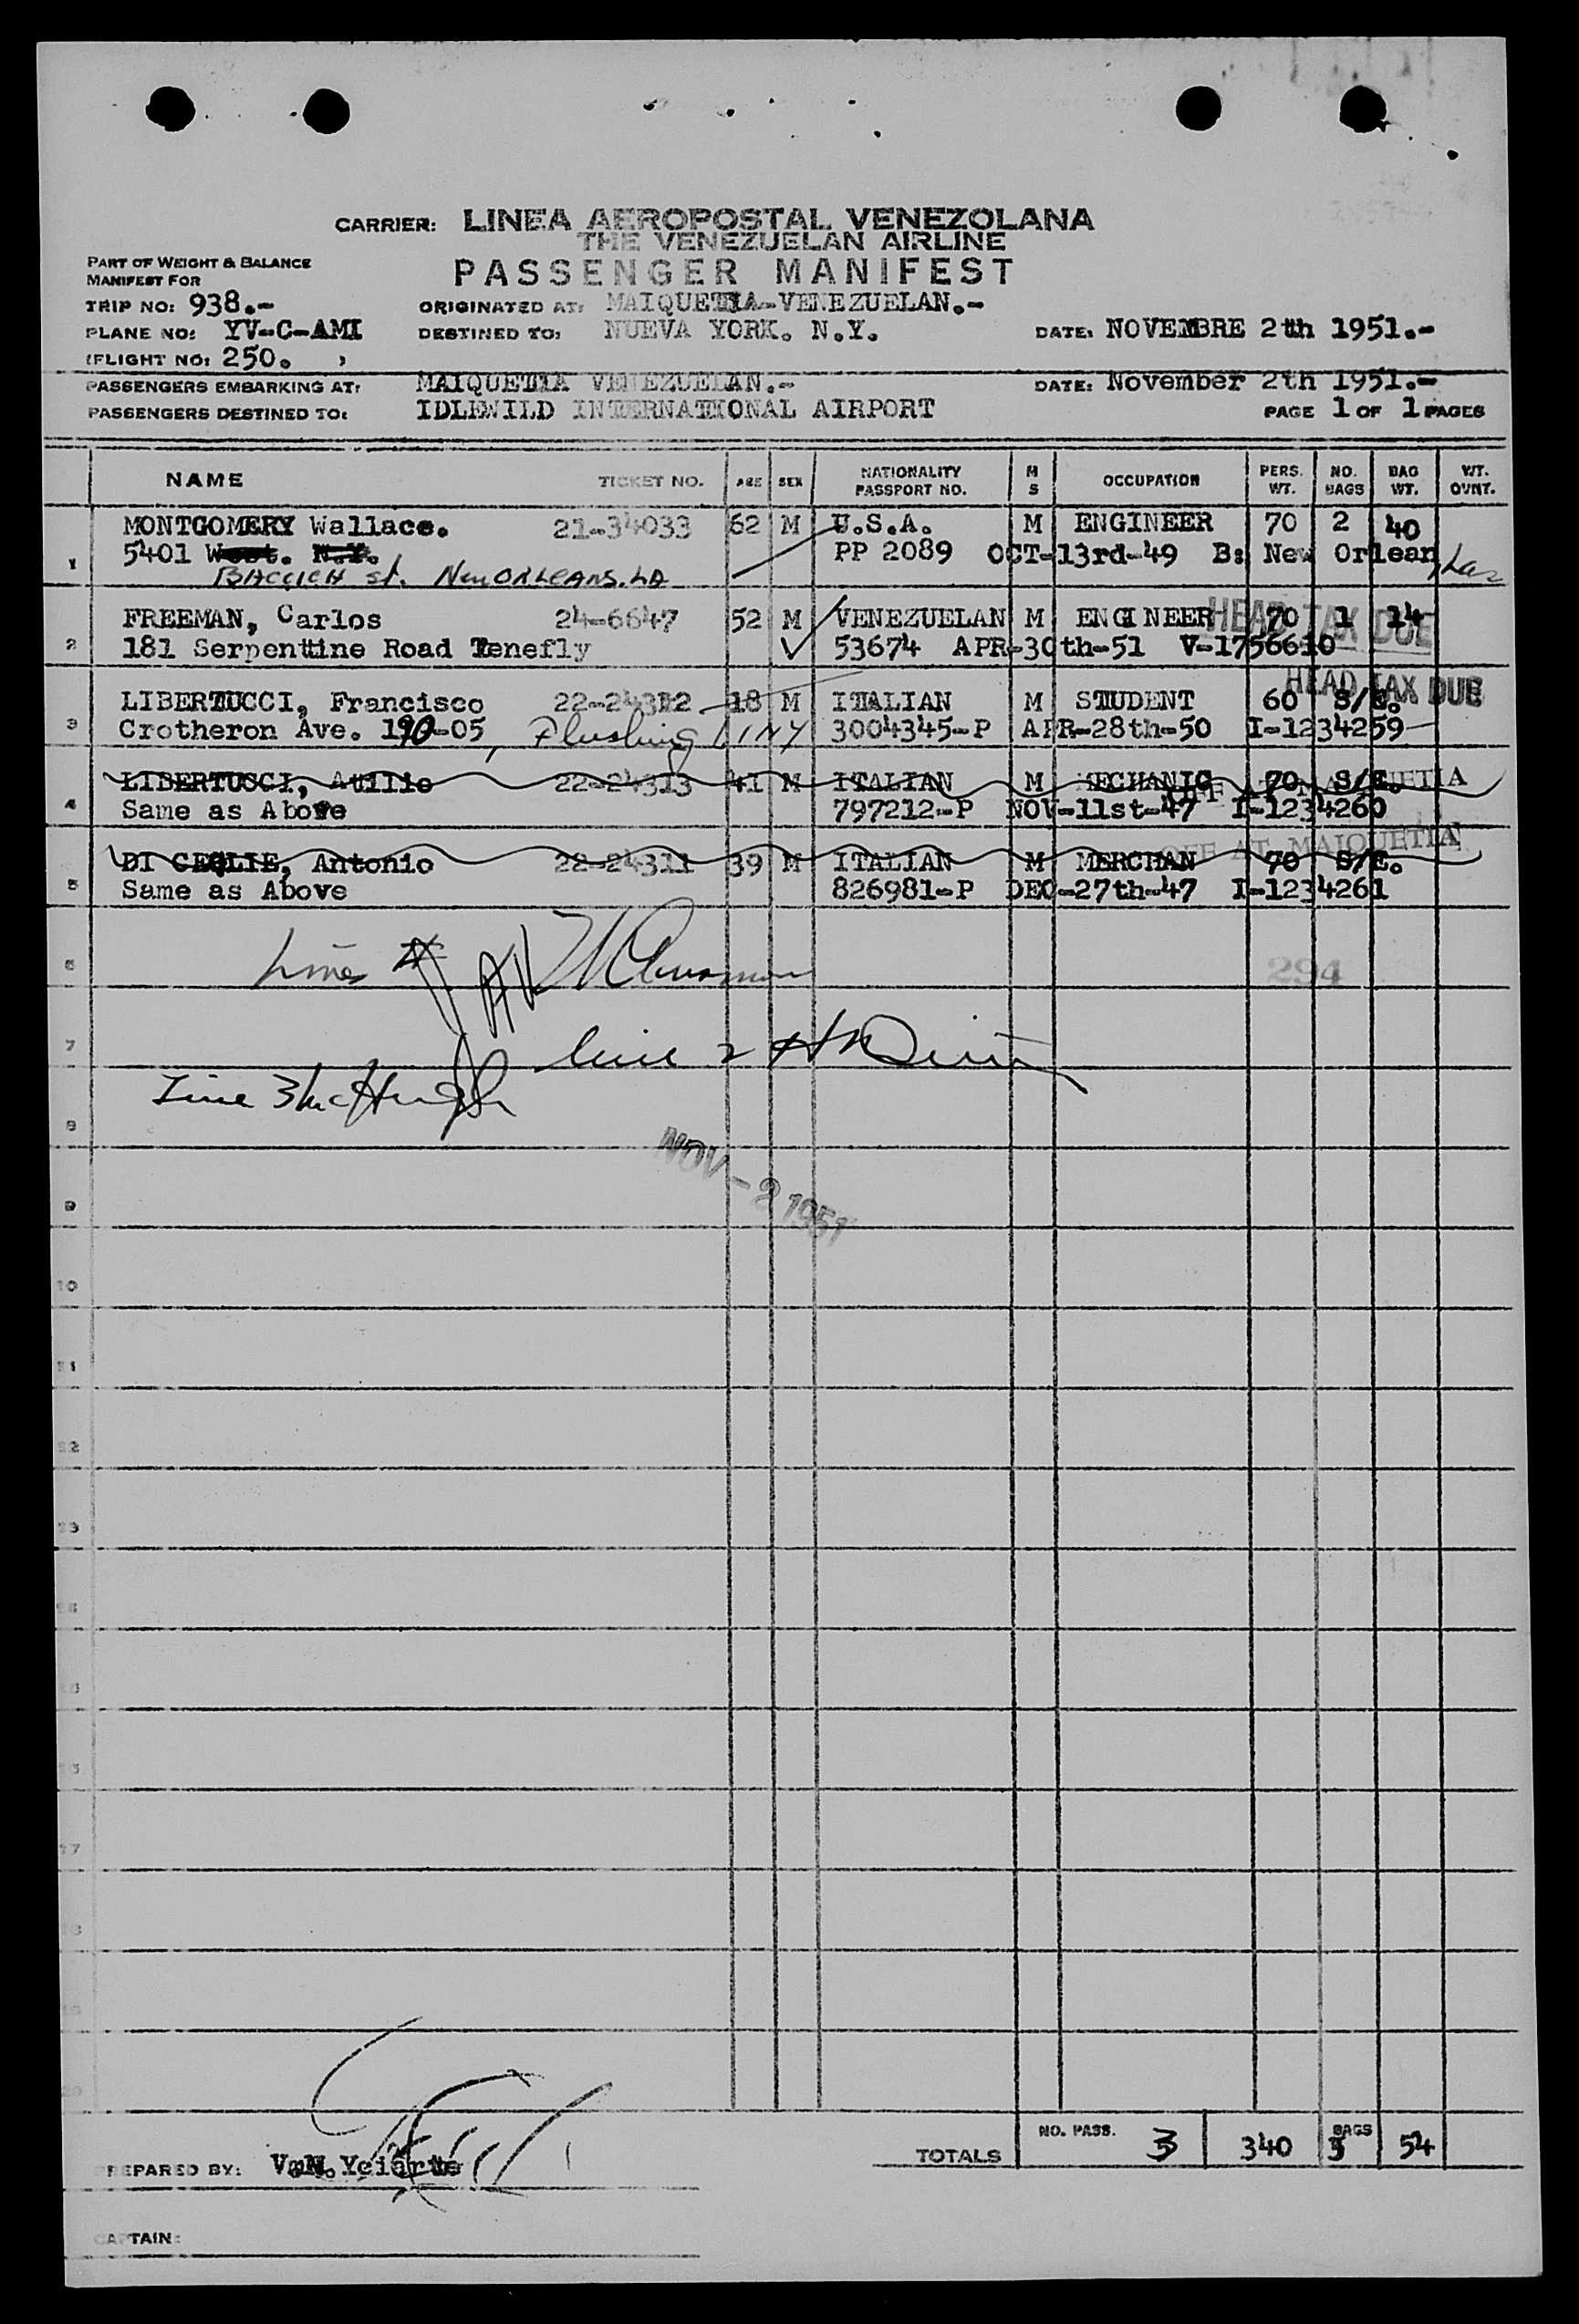 CARRIER: LINEA AEROPOSTAL VENEZOLANA
THE VENEZUELAN AIRLINE
PART OF WEIGHT & BALANCE
MANIFEST FOR
PASSENGER MANIFEST
TRIP NO: 938.- ORIGINATED AT: MAIQUETIA-VENEZUELAN.-
PLANE NO: YV-C-AMI DESTINED TO: NUEVA YORK. N.Y. DATE: NOVEMBRE 2th 1951.-
(FLIGHT NO: 250. )
PASSENGERS EMBARKING AT: MAIQUETIA VENEZUELAN.- DATE: November 2th 1951.-
PASSENGERS DESTINED TO: IDLEWILD INTERNATIONAL AIRPORT PAGE 1 OF 1 PAGES
NAME TICKET NO. AGE SEX NATIONALITY PASSPORT NO. M S OCCUPATION PERS. WT. NO. BAGS BAG WT. WT. OVNT.
MONTGOMERY Wallace. 21-34033 62 M U.S.A. M ENGINEER 70 2 40
1 5401 West. N.Y. PP 2089 OCT-13rd-49 B: New Orlean,
St. New ORLEANS. LA
FREEMAN, Carlos 24-6647 52 M VENEZUELAN M ENGINEER 70 1 14
HEAD TAX DUE
2 181 Serpenttine Road Tenefly 53674 APR-30th-51 V-1756610
HEAD TAX DUE
LIBERTUCCI, Francisco 22-24312 18 M ITALIAN M STUDENT 60 S/E.
3 Crotheron Ave. 190-05, Flushing NY 3004345-P APR-28th-50 I-1234259
LIBERTUCCI, Atilio 22-24313 41 M ITALIAN M MECHANIC 70 S/E.
OFF AT MAIQUETIA
4 Same as Above 797212-P NOV-11st-47 I-1234260
OFF AT MAIQUETIA
DI CEGLIE, Antonio 22-24311 39 M ITALIAN M MERCHAN 70 S/E.
5 Same as Above 826981-P DEC-27th-47 I-1234261
6 294
7 line 2
Line 3 McHugh
8
NOV - 2 1951
9
10
11
12
13
14
17
TOTALS NO. PASS. 3 340 BAGS 3 54
PREPARED BY: V.N.Yciarte
CAPTAIN: